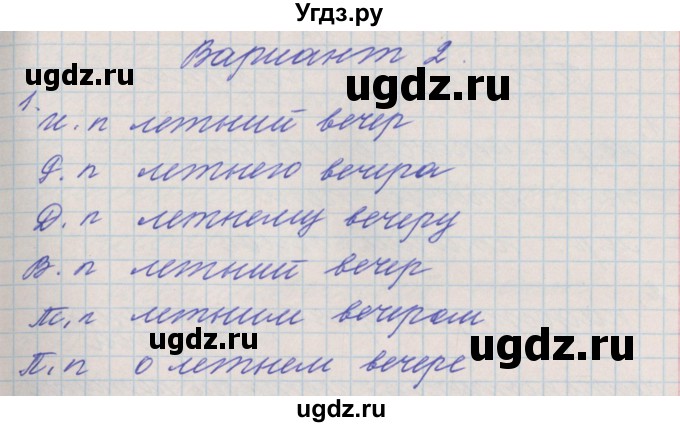 Угдз.ру
Вариант 2.
ugdz.ru
ugdz.ru
1.
И.п летний вечер
ugdz.ru
Д.п летнего вечера
ugdz.ru
Д.п летнему вечеру
ugdz.ru
В.п летний вечер
Т.п летним вечером
ugdz.ru
ugdz.ru
П.п о летнем вечере
ugdz.ru